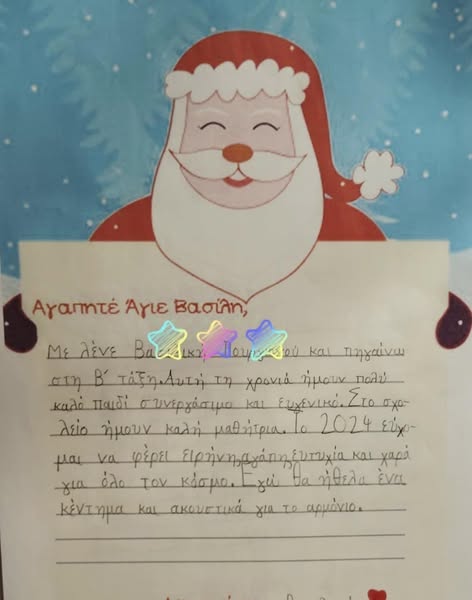 Αγαπητέ Άγιε Βασίλη,
Με λένε και πηγαίνω
στη Β΄ τάξη. Αυτή τη χρονιά ήμουν πολύ
καλό παιδί συνεργάσιμο και ευγενικό. Στο σχο-
λείο ήμουν καλή μαθήτρια. Το 2024 εύχο-
μαι να φέρει ειρήνη, αγάπη, ευτυχία και χαρά
για όλο τον κόσμο. Εγώ θα ήθελα ένα
κέντημα και ακουστικά για το αρμόνιο.